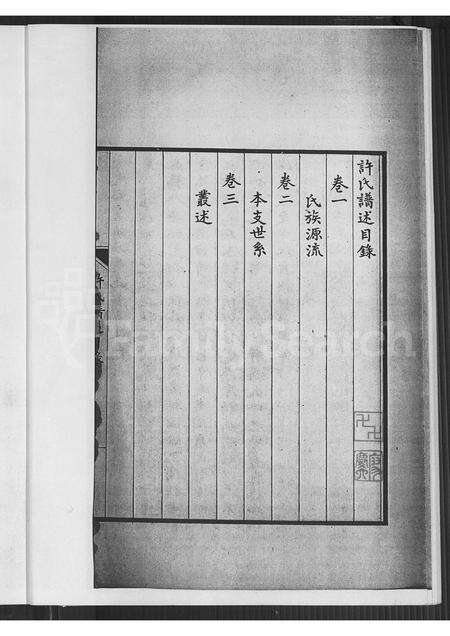 許氏譜述目錄
卷一
氏族源流
卷二
本支世系
卷三
叢述
FamilySearch